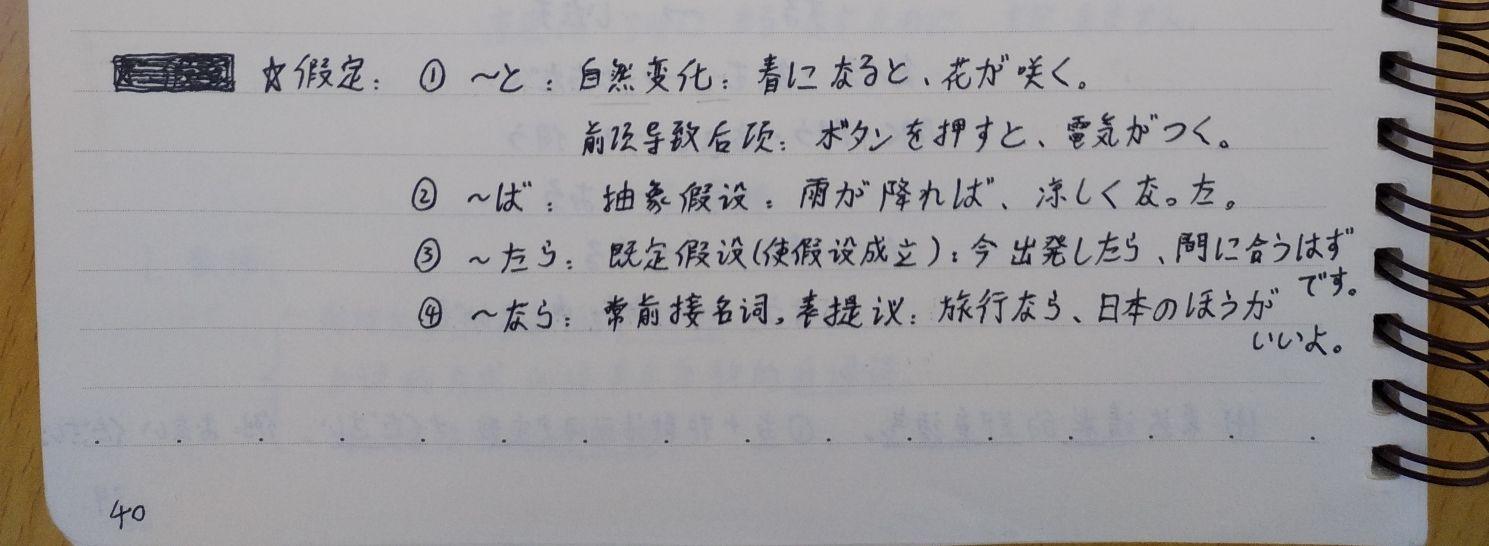 ☆假定：① ～と：自然变化：春になると、花が咲く。
前项导致后项：ボタンを押すと、電気がつく。
② ～ば：抽象假设：雨が降れば、凉しくなった。
③ ～たら：既定假设(使假设成立)：今出発したら、間に合うはず
です。
④ ～なら：常前接名词，表提议：旅行なら、日本のほうが
いいよ。
40